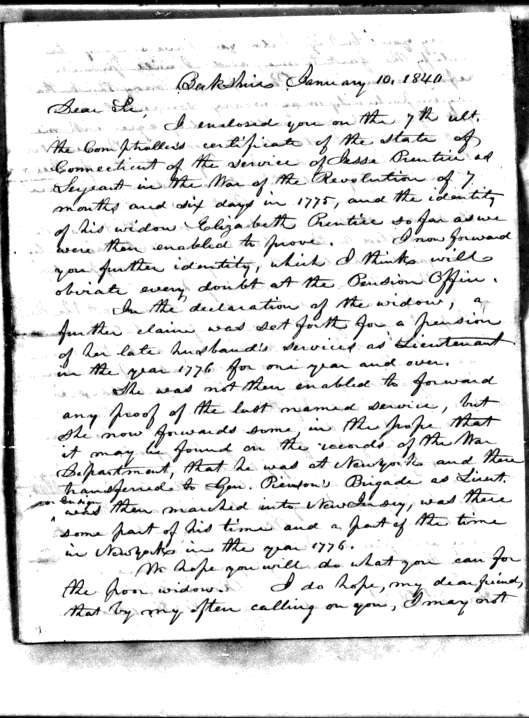 Berkshire January 10, 1840
Dear Sir,
I enclosed you on the 7th ult.
the Comptroller's certificate of the State of
Connecticut of the service of Jesse Prentice as
Sergeant in the War of the Revolution of 7
months and six days in 1775, and the identity
of his widow Elizabeth Prentice so far as we
were then enabled to prove. I now forward
you further identity, which I think will
obviate every doubt at the Pension Office.
In the declaration of the widow, a
further claim was set forth for a pension
of her late husband's services as Lieutenant
in the year 1776 for one year and over.
She was not then enabled to forward
any proof of the last named service, but
she now forwards some, in the hope that
it may be found on the records of the War
Department, that he was at New York and there
transferred to Gen. Pierson's Brigade as Lieut.
or Ensign
was then marched into New Jersey, was there
some part of his time and a part of the time
in New York in the year 1776.
We hope you will do what you can for
the poor widow. I do hope, my dear friend,
that by my often calling on you, I may not